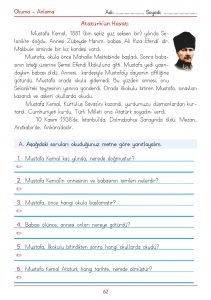 Okuma - Anlama
Adı: Soyadı:
Atatürk'ün Hayatı
Mustafa Kemal, 1881 (bin sekiz yüz seksen bir) yılında Se-
lanik'te doğdu. Annesi Zübeyde Hanım, babası Ali Rıza Efendi'dir.
Makbule isminde bir kız kardeşi vardı.
Mustafa, okula önce Mahalle Mektebinde başladı. Sonra baba-
sının isteği üzerine Şemsi Efendi İlkokuluna gitti. Mustafa yedi yaşın-
dayken babası öldü. Annesi, kardeşiyle Mustafa'yı dayısının çiftliğine
götürdü. Mustafa orada okula gidemedi. Bu yüzden annesi, onu
Selanik'teki teyzesinin yanına gönderdi. Orada ilkokulu bitiren Mustafa, sınavları
kazandı ve askeri okullarda okudu.
Mustafa Kemal, Kurtuluş Savaşı'nı kazandı, yurdumuzu düşmanlardan kur-
tardı. Cumhuriyeti kurdu. Türk Milleti ona Atatürk soyadını verdi.
10 Kasım 1938'de, İstanbul'da, Dolmabahçe Sarayında öldü. Mezarı,
Anıtkabir'de, Ankara'dadır.
A. Aşağıdaki soruları okuduğunuz metne göre yanıtlayalım.
1. Mustafa Kemal kaç yılında, nerede doğmuştur?
2. Mustafa Kemal'in annesinin ve babasının isimleri nelerdir?
3. Mustafa, önce hangi okula başlamıştır?
4. Babası ölünce, annesi onları nereye götürdü?
5. Mustafa, ilkokulu bitirdikten sonra hangi okullarda okudu?
6. Mustafa Kemal Atatürk hangi tarihte, nerede ölmüştür?
62